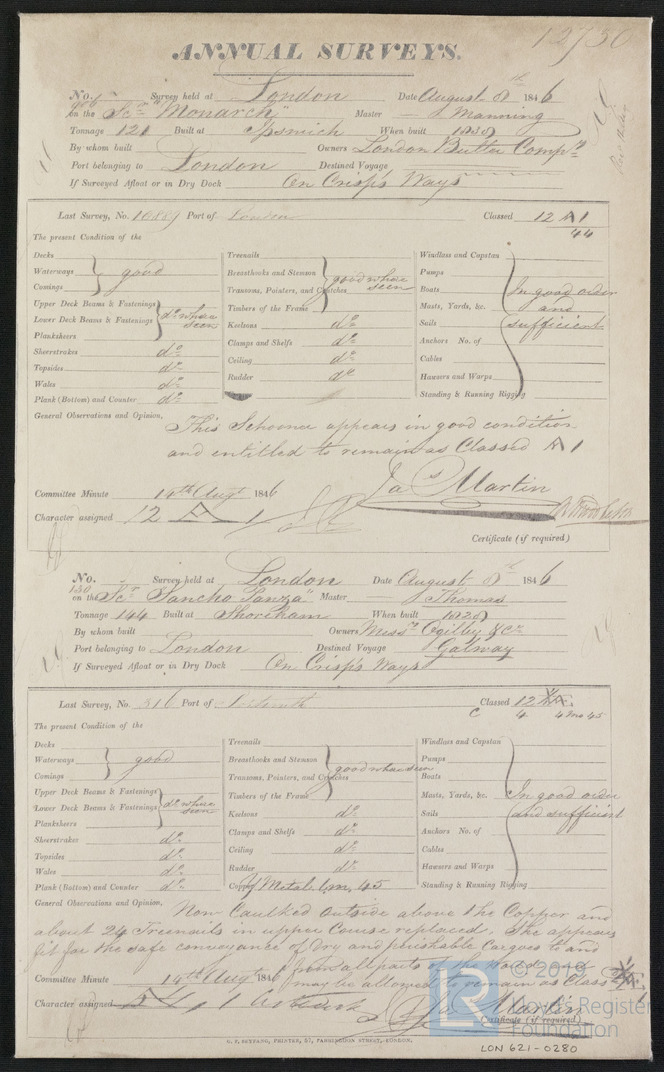 12750
ANNUAL SURVEYS.
No. 906 Survey held at London Date August 8th 1846
on the Scr "Monarch" Master J Manning
Tonnage 121 Built at Ipswich When built 1838
By whom built Owners London Butter Compy
Port belonging to London Destined Voyage
If Surveyed Afloat or in Dry Dock On Crisp's Ways
Last Survey, No. 10889 Port of London Classed 12 A 1
44
The present Condition of the
Decks
Waterways good
Comings
Upper Deck Beams & Fastenings
Lower Deck Beams & Fastenings do where seen
Planksheers
Sheerstrakes do
Topsides do
Wales do
Plank (Bottom) and Counter do
Treenails
Breasthooks and Stemson good where seen
Transoms, Pointers, and Crutches
Timbers of the Frame
Keelsons do
Clamps and Shelfs do
Ceiling do
Rudder do
Windlass and Capstan
Pumps
Boats In good order
Masts, Yards, &c. and
Sails sufficient
Anchors No. of
Cables
Hawsers and Warps
Standing & Running Rigging
General Observations and Opinion, This Schooner appears in good condition
and entitled to remain as Classed A 1
Jas Martin
Committee Minute 14th Augt 1846
Character assigned 12 A 1
Certificate (if required)
No. 150 Survey held at London Date August 8th 1846
on the Scr "Sancho Panza" Master J Thomas
Tonnage 144 Built at Shoreham When built 1828
By whom built Owners Messrs Ogilby & Co
Port belonging to London Destined Voyage Galway
If Surveyed Afloat or in Dry Dock On Crisp's Ways
Last Survey, No. 316 Port of Classed 12
C 4 4mo 45
The present Condition of the
Decks
Waterways good
Comings
Upper Deck Beams & Fastenings
Lower Deck Beams & Fastenings do where seen
Planksheers
Sheerstrakes do
Topsides do
Wales do
Plank (Bottom) and Counter do
Treenails
Breasthooks and Stemson
Transoms, Pointers, and Crutches good where seen
Timbers of the Frame
Keelsons do
Clamps and Shelfs do
Ceiling do
Rudder do
Copper Y Metal 45
Windlass and Capstan
Pumps
Boats
Masts, Yards, &c. In good order
Sails and sufficient
Anchors No. of
Cables
Hawsers and Warps
Standing & Running Rigging
General Observations and Opinion, Now Caulked outside above the Copper and
about 24 Treenails in upper Course replaced. She appears
fit for the safe conveyance of Dry and perishable Cargoes to and
from all parts of the World and
may be allowed to remain as Class
Committee Minute 14th Augt 1846
Character assigned
Jas Martin
Certificate (if required)
© 2019
Lloyd's Register
Foundation
LR
LON 621-0280